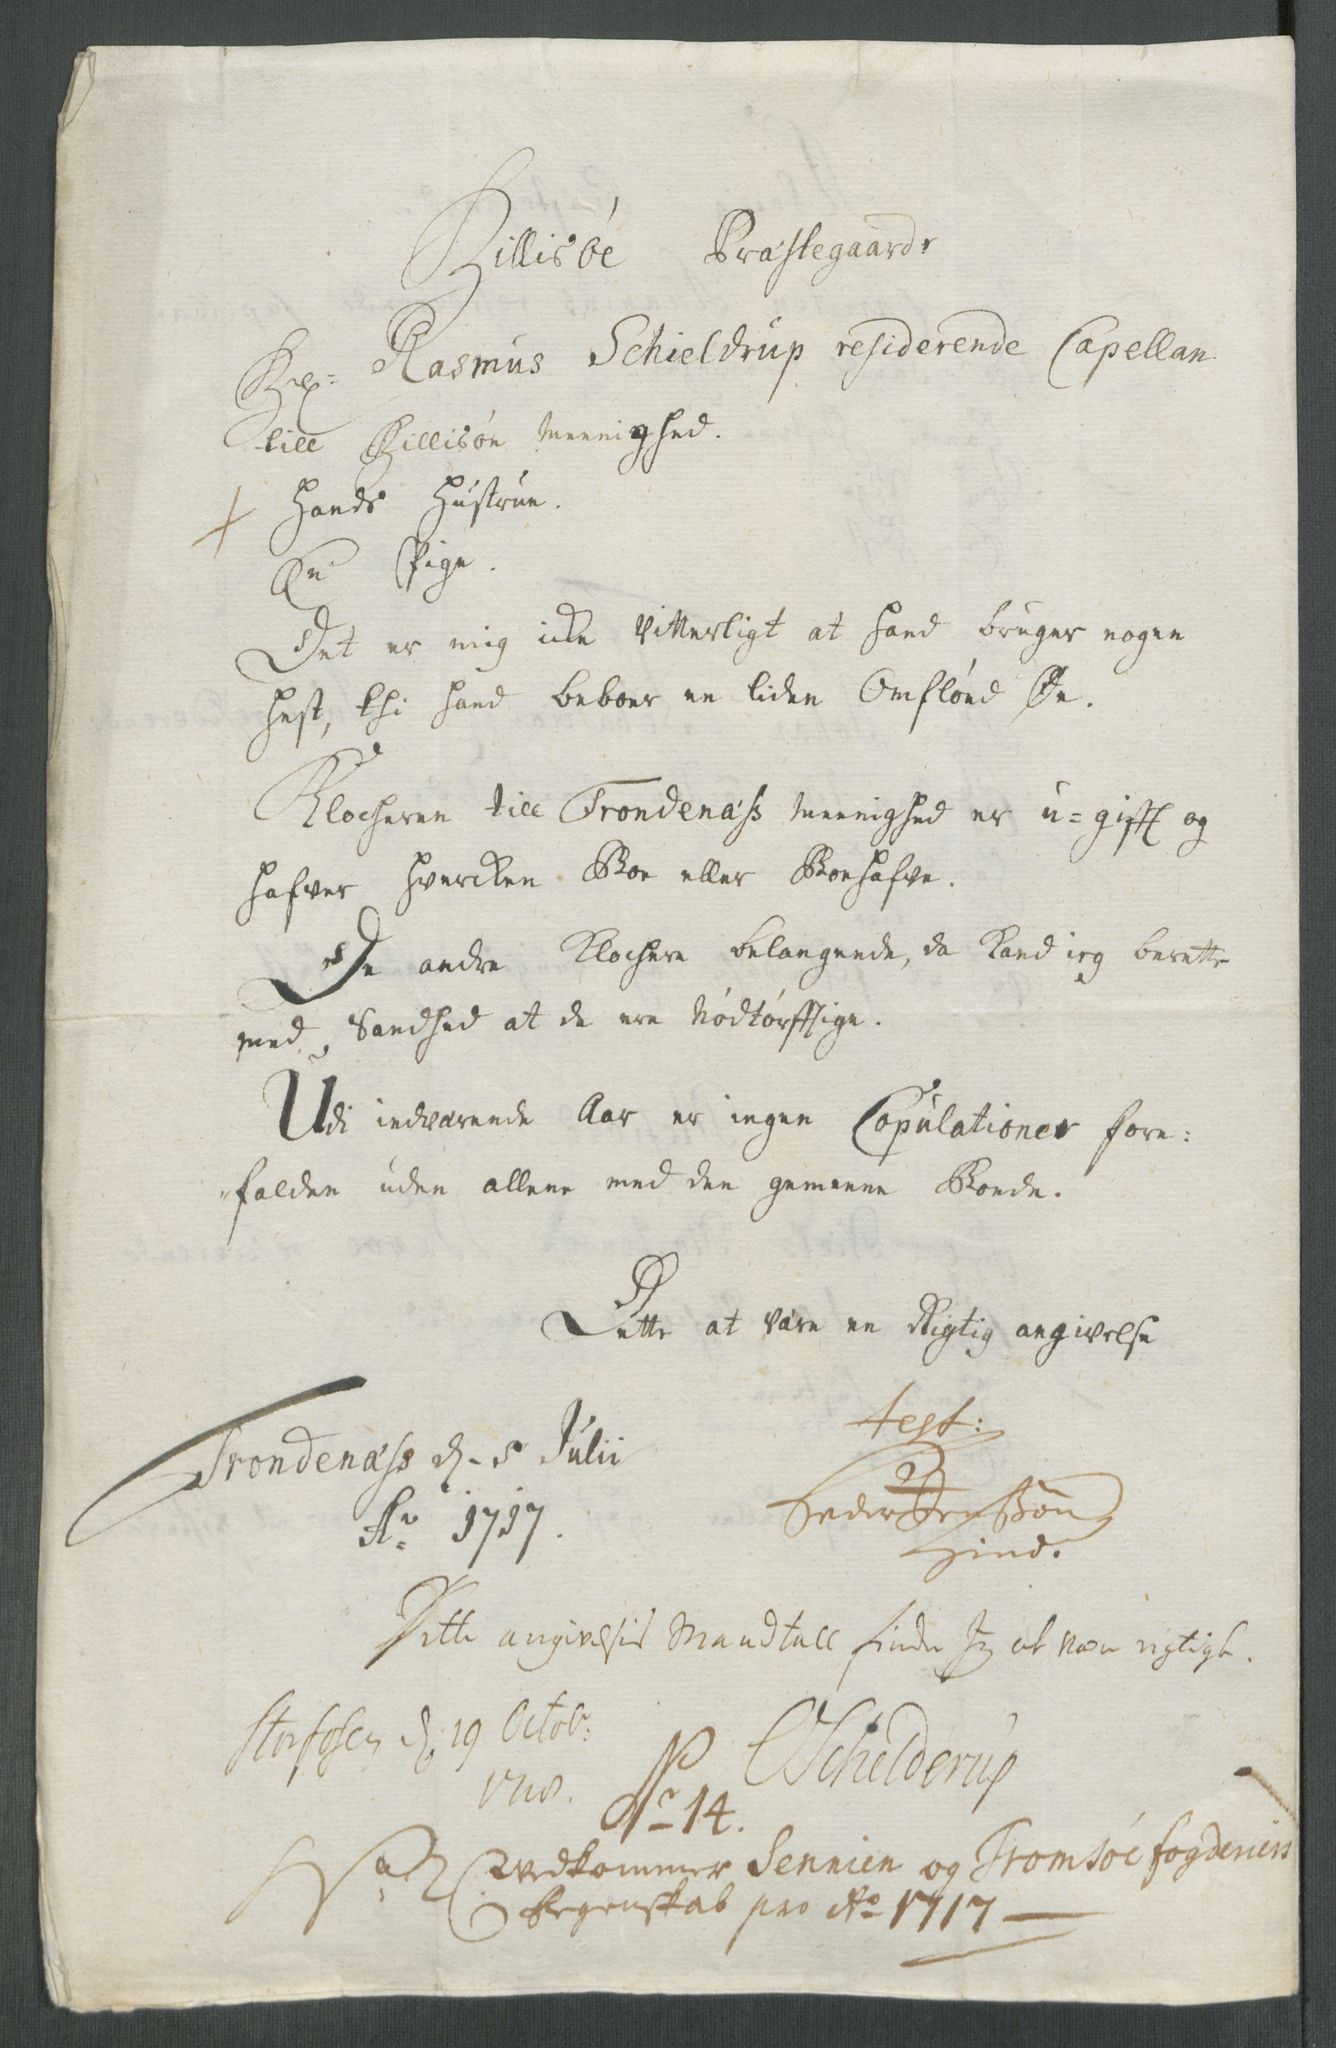 Gillisøe Præstegaard
Hr= Rasmus Schieldrup residerende Capellan
till Gillisøe Meenighed.
+ Hands Hustrue.
En Pige.
Det er mig icke Vitterligt at hand bruger nogen
Hest, thi hand beboer en liden Omfløed Øe.
Klocheren till Trondenæss Meenighed er u=gifft og
hafver hvercken Boe eller Boehafve.
De andre Klochere belangende, da kand ieg berette
med Sandhed at de ere Nødtørfftige.
Udi indværende Aar er ingen Copulationer fore=
=falden uden allene med den gemeene Bonde.
Dette at være en Rigtig angivelse
test:
Trondenæss d. 5 Julii
Ao 1717.
Peder Jenssøn
Hind.
Dette angivelsis Mandtall finder Jeg at være rigtigt.
Storfosen d. 19 Octobr:
1718.
OSchelderup
No 14.
Vedkommer Sennien og Tromsøe fogderiers
Regenskab pro Ao 1717